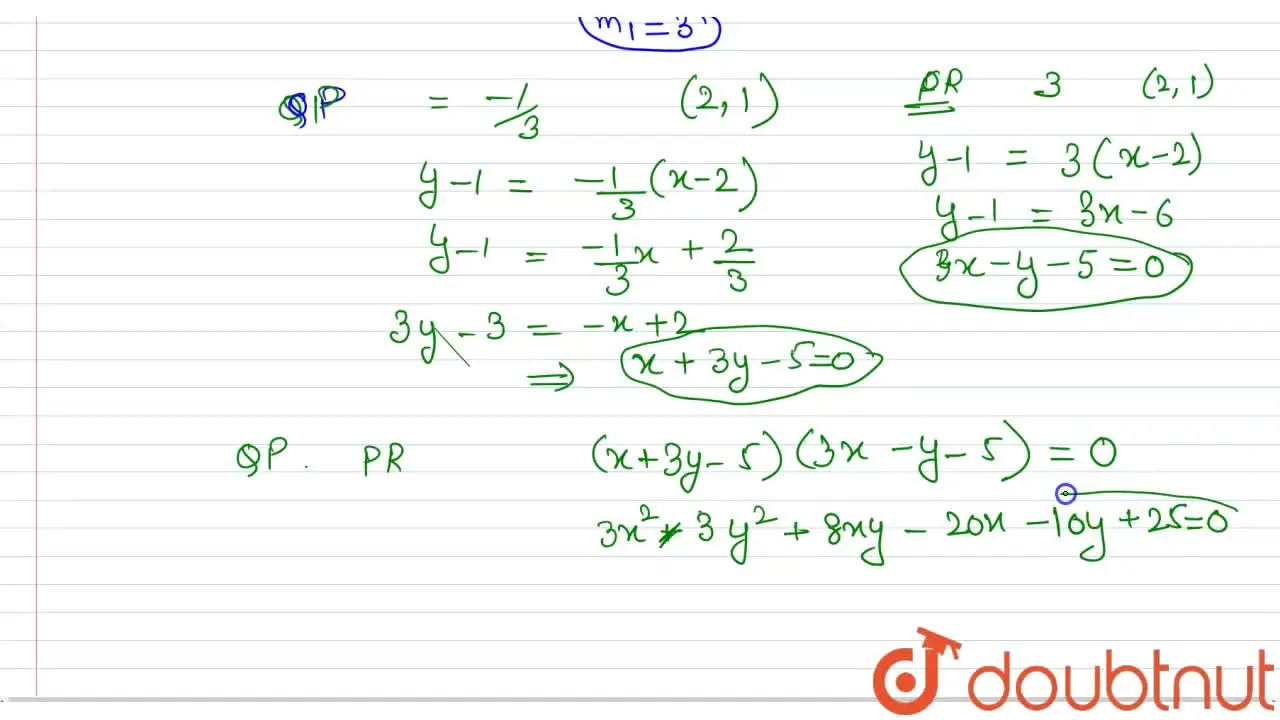 m₁ = 3
QP = -1/3 (2, 1)
y - 1 = -1/3 (x - 2)
y - 1 = -1/3 x + 2/3
3y - 3 = -x + 2
⇒ x + 3y - 5 = 0
PR 3 (2, 1)
y - 1 = 3(x - 2)
y - 1 = 3x - 6
3x - y - 5 = 0
QP. PR (x + 3y - 5)(3x - y - 5) = 0
3x² - 3y² + 8xy - 20x - 10y + 25 = 0
doubtnut